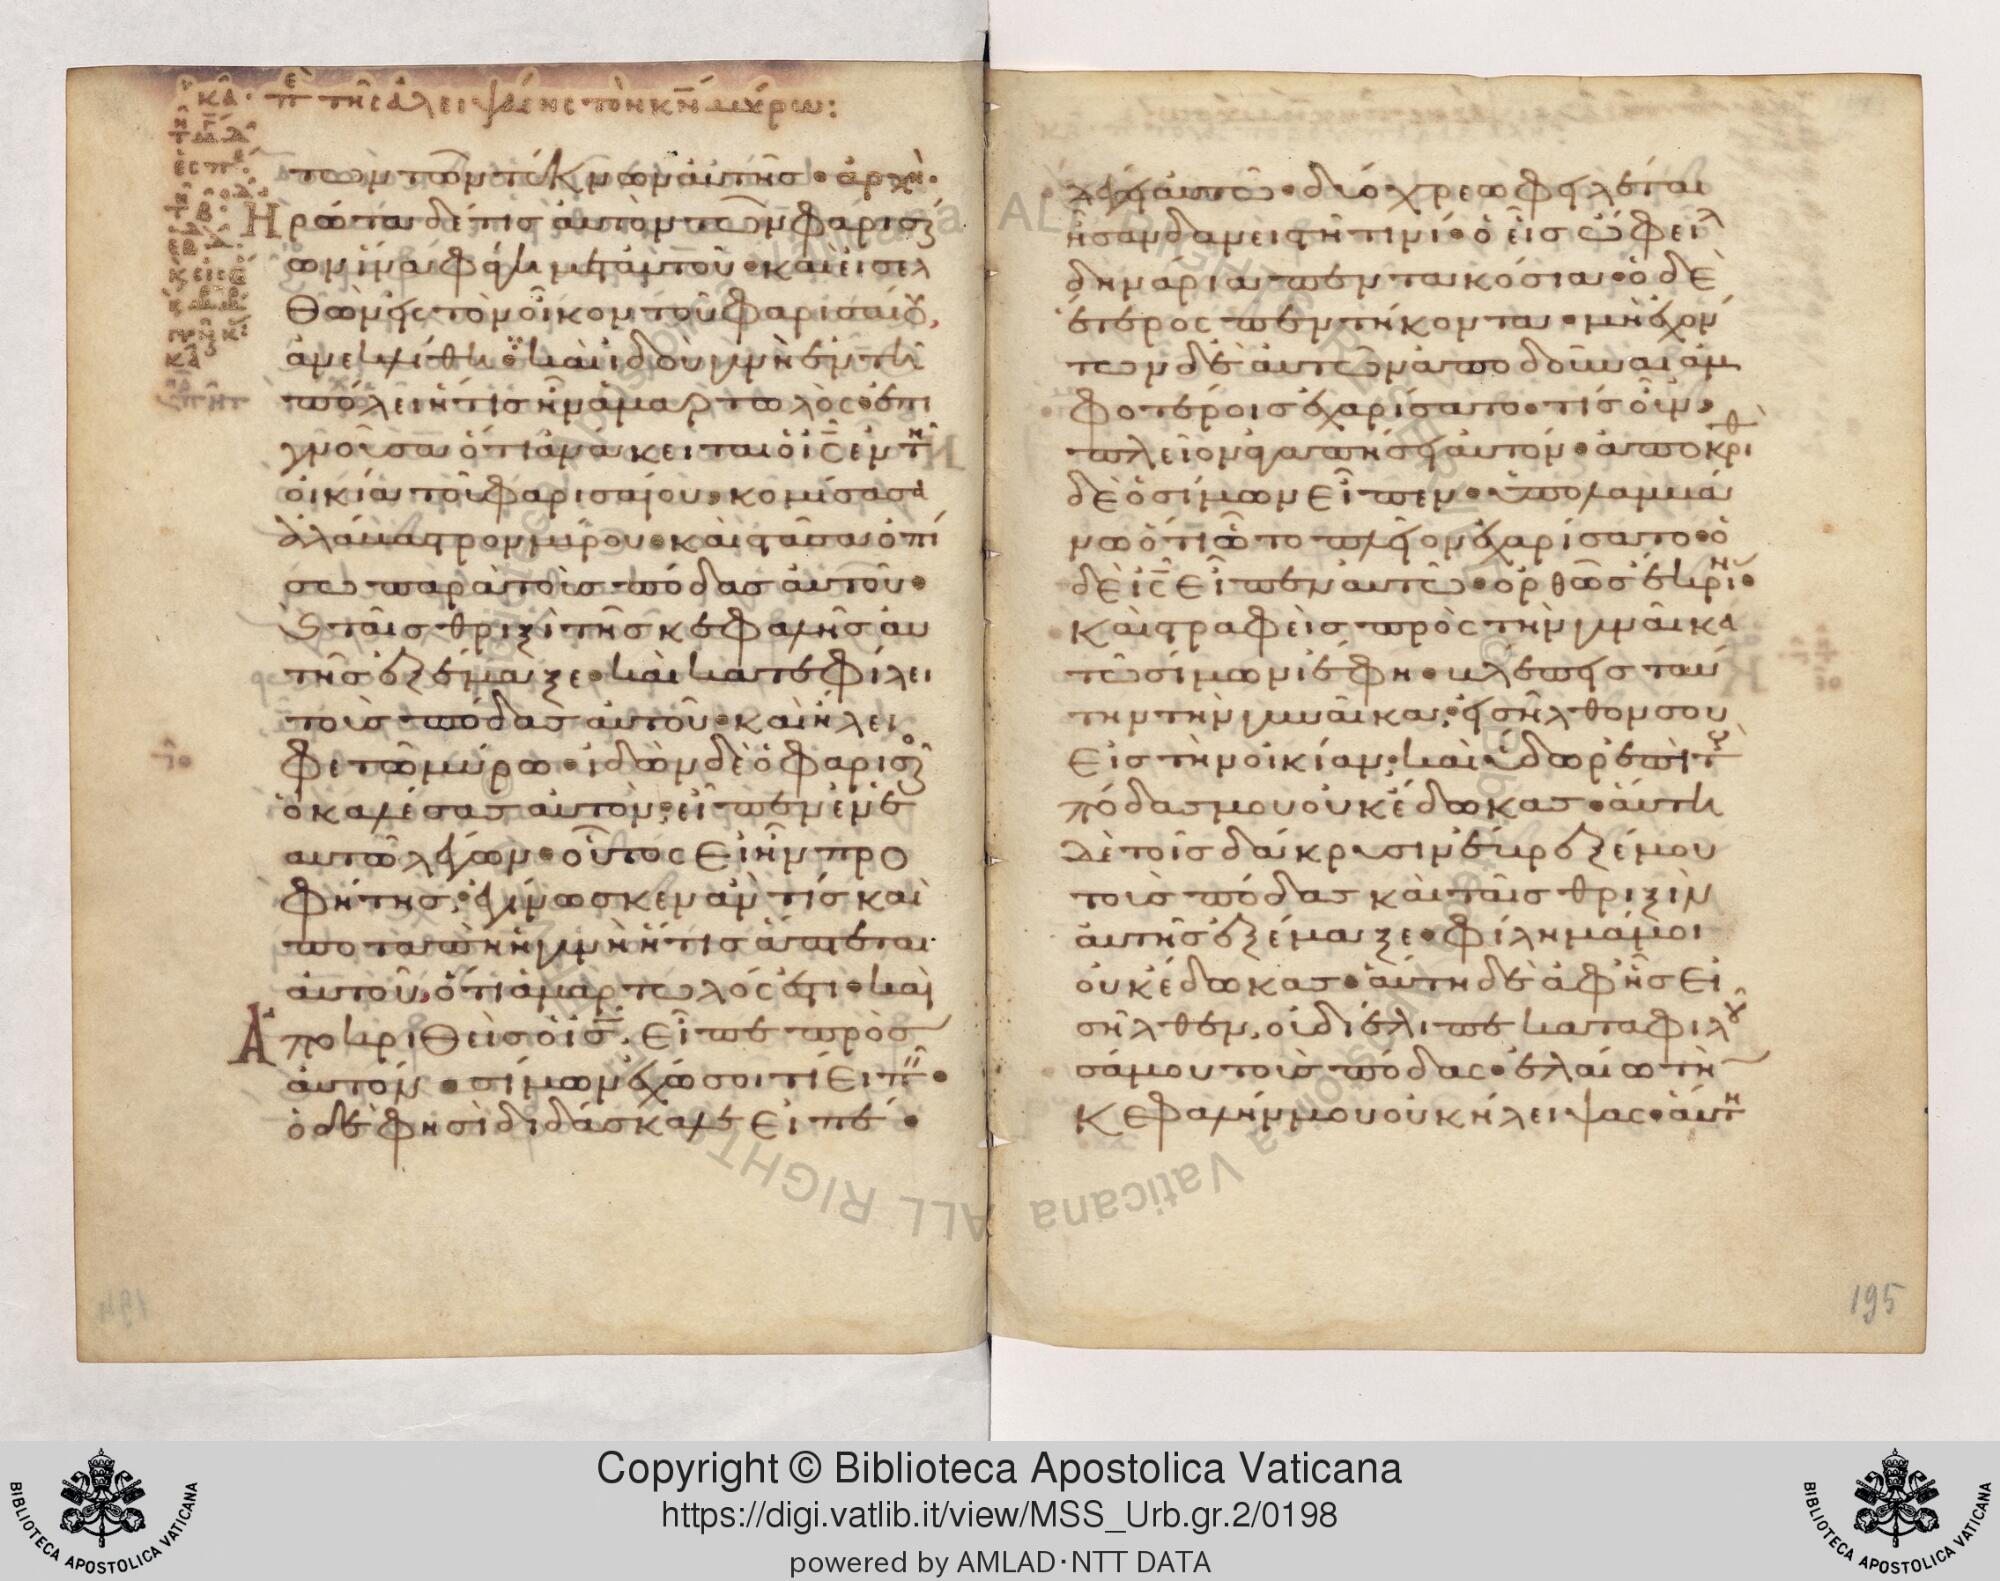 κα· περὶ τῆς ἀλειψάσης τὸν κν̄ μύρω:
των τῶν τέκνων αὐτῆς· ἀρχὴ·
Ἠρώτα δέ τις αὐτὸν τῶν φαρισαί
ων ἵνα φάγη μετ᾽ αὐτοῦ· καὶ εἰσελ
θὼν εἰς τὸν οἶκον τοῦ φαρισαίου,
ἀνεκλίθη· καὶ ἰδοὺ γυνὴ ἐν τῆ
πόλει ἥτις ἦν ἁμαρτωλός· ἐπι
γνοῦσα ὅτι ἀνάκειται ὁ ις̄ ἐν τῆ
οἰκία τοῦ φαρισαίου, κομίσασα
ἀλάβαστρον μύρου· καὶ στᾶσα ὀπί
σω παρὰ τοὺς πόδας αὐτοῦ·
ταῖς θριξὶ τῆς κεφαλῆς αὐ
τῆς ἐξέμαξε· καὶ κατεφίλει
τοὺς πόδας αὐτοῦ· καὶ ἤλει
φε τῶ μύρω· ἰδὼν δὲ ὁ φαρισαῖος
ὁ καλέσας αὐτὸν, εἶπεν ἐν ἑ
αυτῶ λέγων· οὗτος εἰ ἦν προ
φήτης, ἐγίνωσκεν ἂν τίς καὶ
ποταπὴ ἡ γυνὴ ἥτις ἅπτεται
αὐτοῦ, ὅτι ἁμαρτωλός ἐστι· καὶ
Ἀποκριθεὶς ὁ ις̄, εἶπε πρὸς
αὐτόν· σίμων ἔχω σοι τί εἰπεῖν·
ὁ δέ φησὶ διδάσκαλε εἰπέ·
λέγει αὐτῶ· δύο χρεωφειλέται
ἦσαν δανειστῆ τινί· ὁ εἷς ὤφειλε
δηνάρια πεντακόσια· ὁ δὲ
ἕτερος πεντήκοντα· μὴ ἐχόν
των δὲ αὐτῶν ἀποδοῦναι ἀμ
φοτέροις ἐχαρίσατο· τίς οὖν,
πλεῖον ἀγαπήσει αὐτόν· ἀποκριθεὶς
δὲ ὁ σίμων εἶπεν· ὑπολαμβά
νω ὅτι ὧ τὸ πλεῖον ἐχαρίσατο· ὁ
δὲ ις̄ εἶπεν αὐτῶ· ὀρθῶς ἔκρινας·
Καὶ στραφεὶς πρὸς τὴν γυναῖκα
τῶ σίμωνι ἔφη· βλέπεις ταύ
την τὴν γυναῖκα; εἰσῆλθόν σου
εἰς τὴν οἰκίαν, καὶ ὕδωρ ἐπὶ τοὺς
πόδας μου οὐκ ἔδωκας· αὕτη
δὲ τοῖς δάκρυσιν ἔβρεξέ μου
τοὺς πόδας καὶ ταῖς θριξὶν
αὐτῆς ἐξέμαξε· φίλημά μοι
οὐκ ἔδωκας· αὕτη δὲ ἀφ᾽ ἧς εἰ
σῆλθεν, οὐ διέλιπε καταφιλοῦ
σά μου τοὺς πόδας· ἐλαίω τὴν
Κεφαλήν μου οὐκ ἤλειψας· αὕτη
195
Copyright © Biblioteca Apostolica Vaticana
https://digi.vatlib.it/view/MSS_Urb.gr.2/0198
powered by AMLAD·NTT DATA
BIBLIOTECA APOSTOLICA VATICANA
BIBLIOTECA APOSTOLICA VATICANA